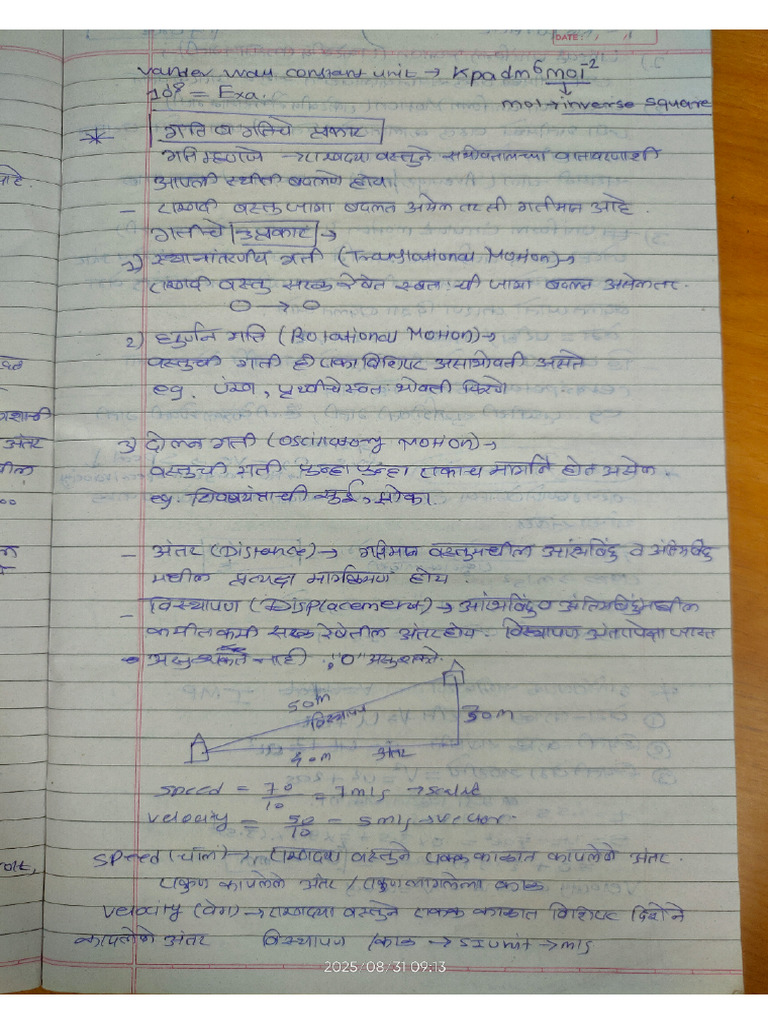 DATE:
vander waal constant unit → Kpa dm⁶ mol⁻²
10¹⁸ = Exa. mol → inverse square
* गति व गतिचे प्रकार
गति म्हणजे → एखाद्या वस्तूने सभोवतालच्या वातावरणाशी
आपली स्थिती बदलणे होय
– एखादी वस्तू जागा बदलत असेल तर ती गतीमान आहे.
गतीचे 3 प्रकार →
1) स्थानांतरणीय गती (Translational Motion) →
एखादी वस्तू सरळ रेषेत स्वतःची जागा बदलत असेल तर.
O → O
2) घुर्णन गति (Rotational Motion) →
वस्तुची गती ही एका विशिष्ट आसाभोवती असते
eg. पंखा, पृथ्वीचे स्वतः भोवती फिरणे
3) दोलन गती (oscillatory Motion) →
वस्तुची गती पुन्हा पुन्हा एकाच मार्गाने होत असेल.
eg. शिवणयंत्राची सुई, झोका.
– अंतर (Distance) → गतिमान वस्तुमधील आरंभबिंदु व अंतिमबिंदु
मधील प्रत्यक्ष मार्गक्रमण होय.
– विस्थापण (Displacement) → आरंभबिंदु व अंतिमबिंदुमधील
कमीत कमी सरळ रेषेतील अंतर होय. विस्थापण अंतरापेक्षा जास्त
असू शकत नाही, "0" असू शकते.
50m
विस्थापण 30m
40m अंतर
speed = 70/10 = 7 m/s → scalar
velocity = 50/10 = 5 m/s → vector.
speed (चाल) → एखाद्या वस्तुने एकक काळात कापलेले अंतर.
एकुण कापलेले अंतर / एकुण लागलेला काळ
velocity (वेग) → एखाद्या वस्तुने एकक काळात विशिष्ट दिशेने
कापलेले अंतर विस्थापण / काळ → SI unit → m/s
2025/08/31 09:13